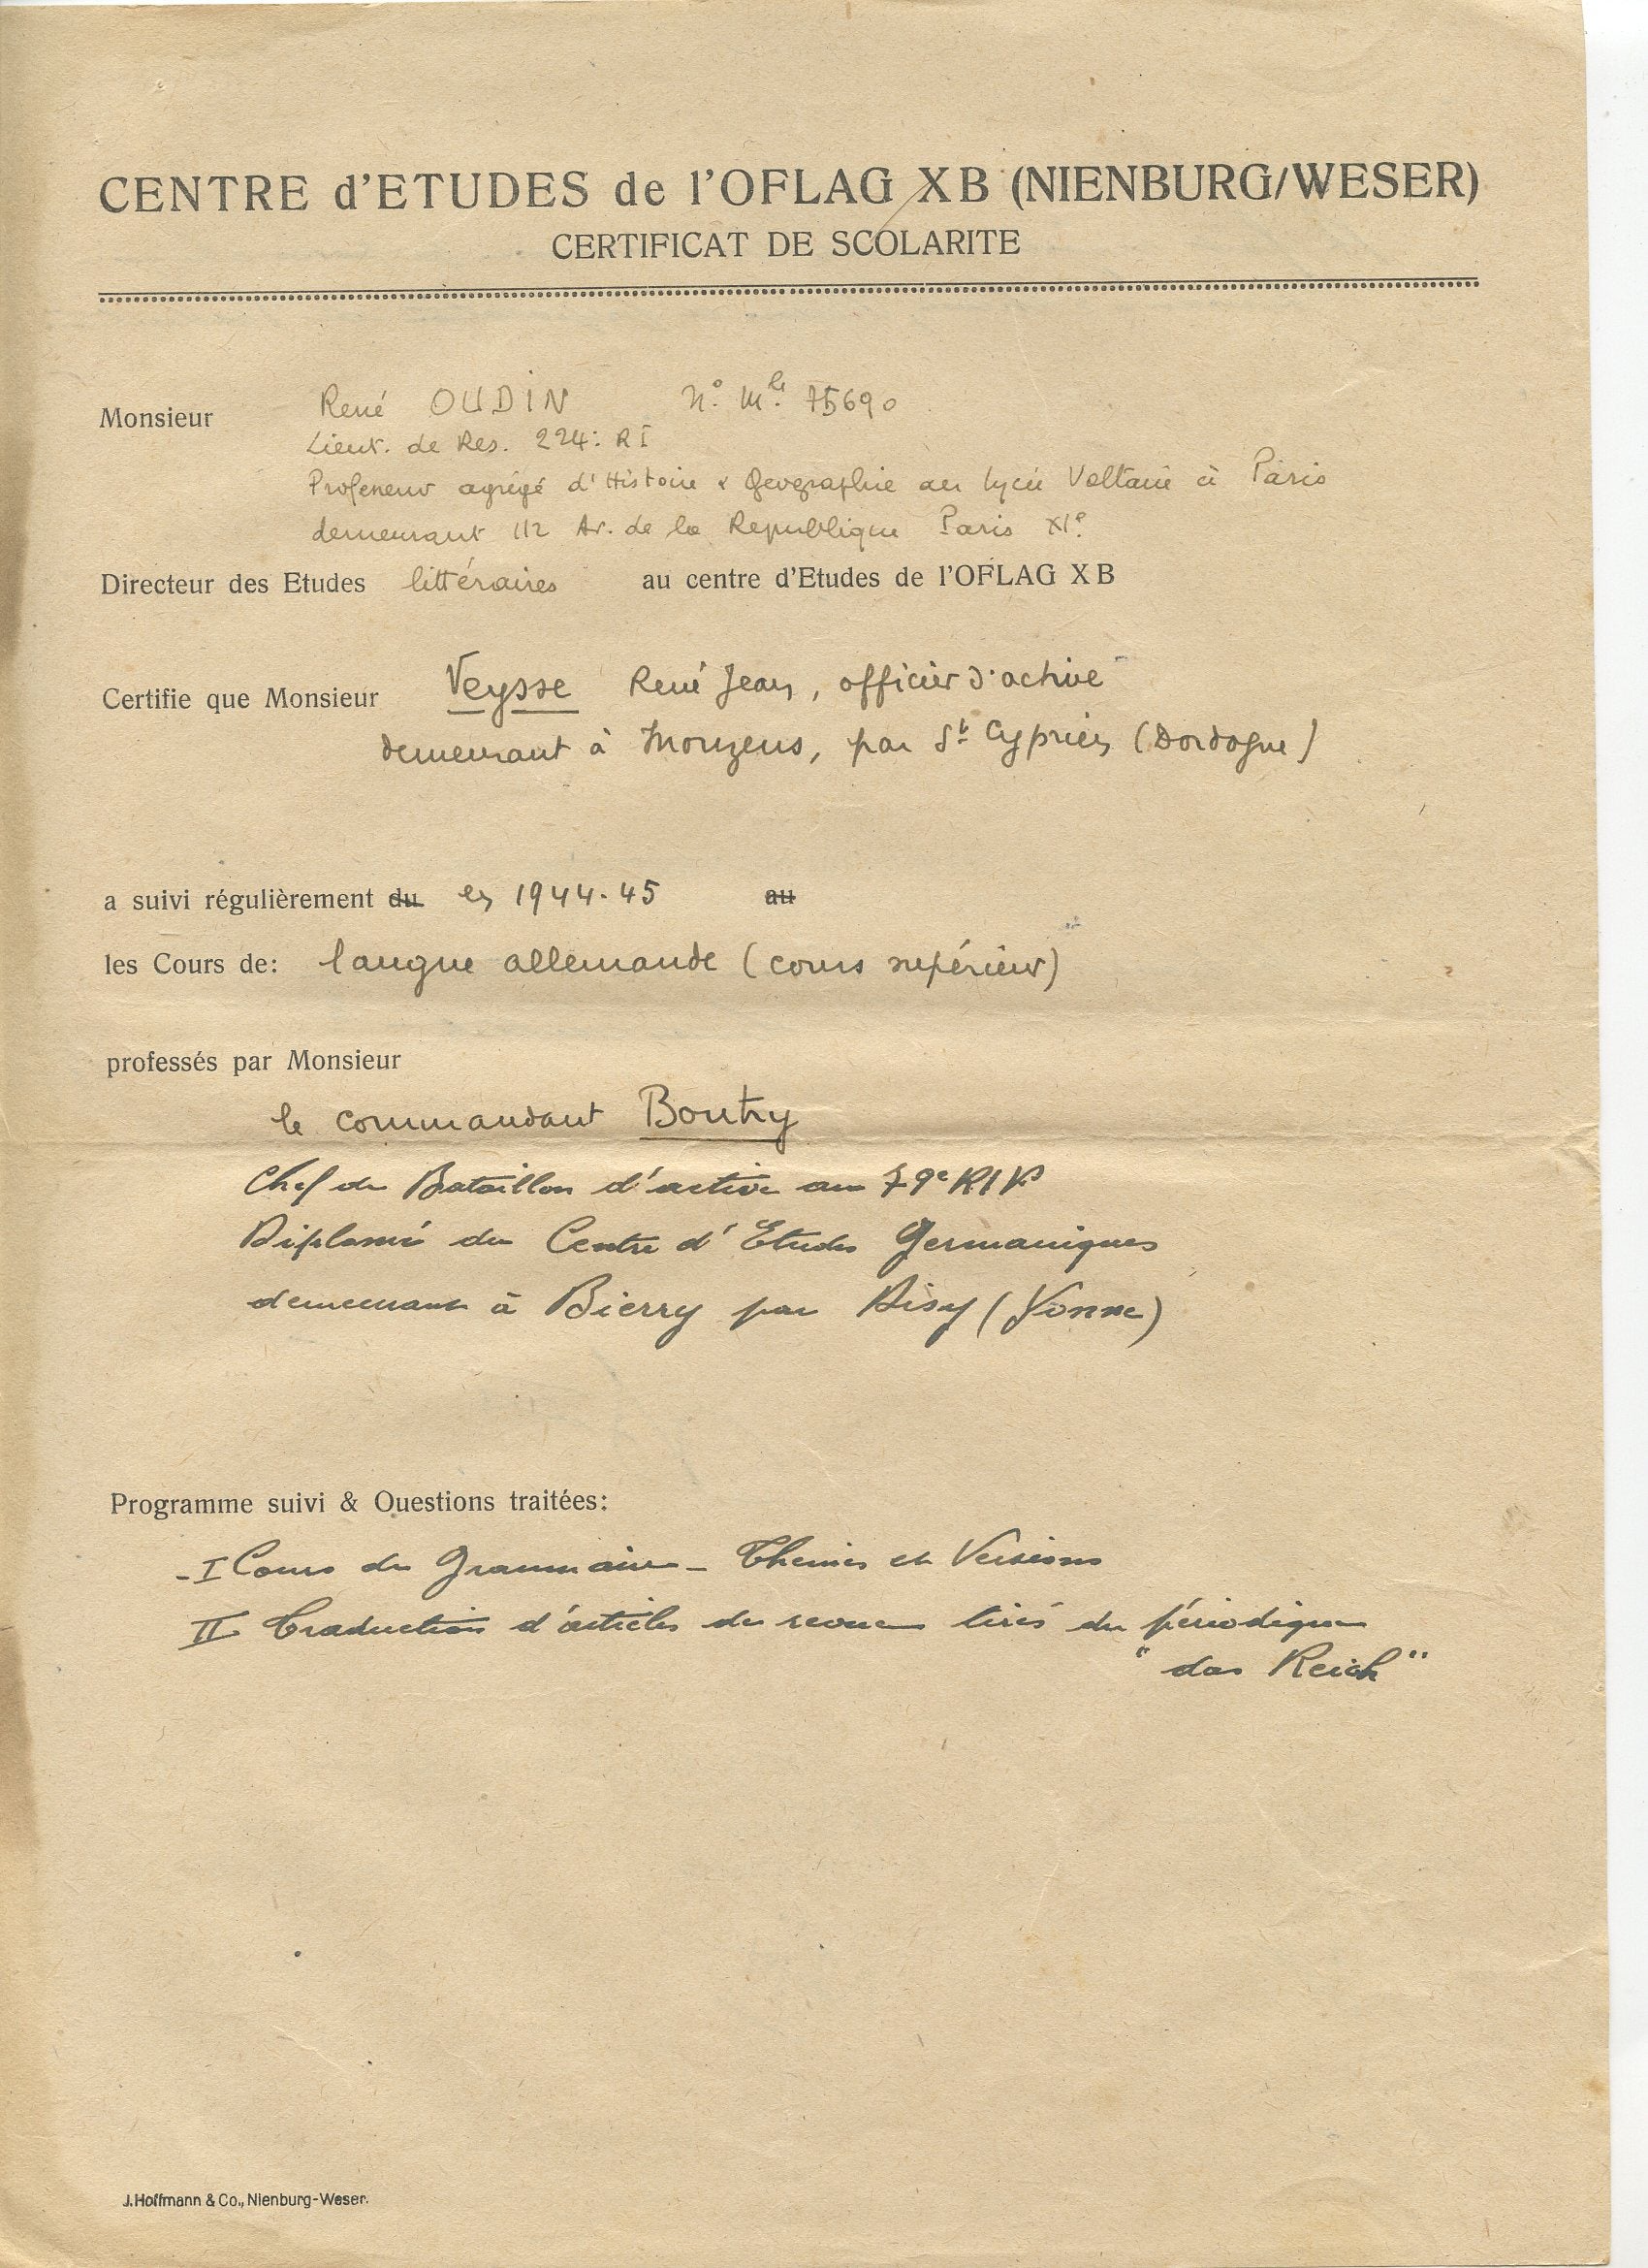 CENTRE d'ETUDES de l'OFLAG XB (NIENBURG/WESER)
CERTIFICAT DE SCOLARITE
Monsieur René OUDIN N° Mle 75690
Lieut. de Res. 224e RI
Professeur agrégé d'Histoire & Geographie au lycée Voltaire à Paris
demeurant 112 Av. de la Republique Paris XIe
Directeur des Etudes littéraires au centre d'Etudes de l'OFLAG XB
Certifie que Monsieur Veysse René Jean, officier d'active
demeurant à Mouzens, par St Cyprien (Dordogne)
a suivi régulièrement du en 1944-45 au
les Cours de: langue allemande (cours supérieur)
professés par Monsieur
le commandant Boutry
Chef de Bataillon d'active au 79e RIF
Diplomé du Centre d'Etudes Germaniques
demeurant à Bierry par (Yonne)
Programme suivi & Questions traitées:
- I Cours de Grammaire - Thèmes et Versions
II Traduction d'articles de revues tirés du périodique
"das Reich"
J. Hoffmann & Co., Nienburg-Weser.